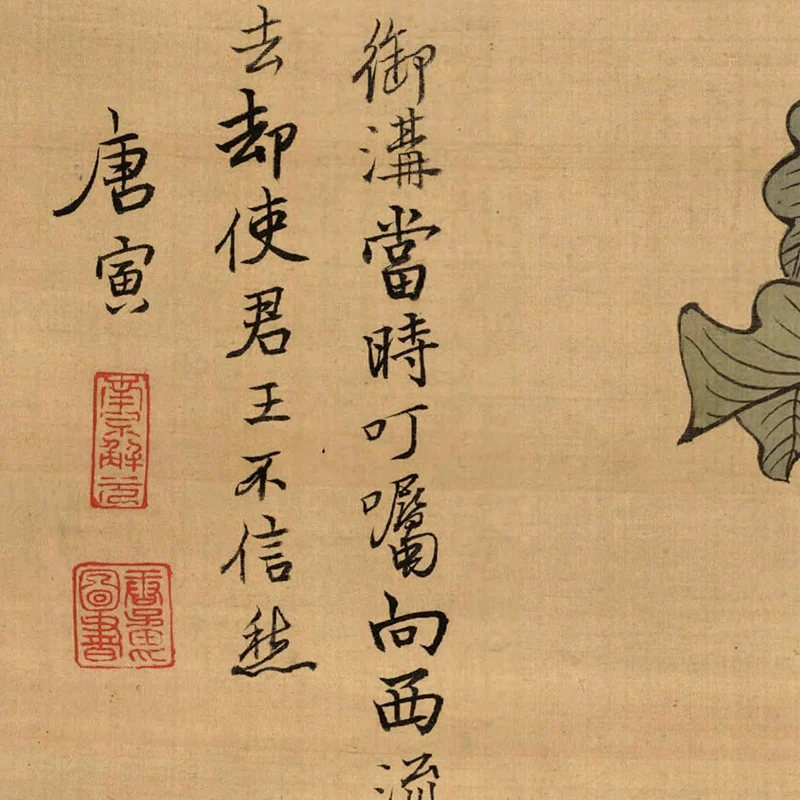 御溝當時叮囑向西流
去却使君王不信愁
唐寅
南京解元
唐子畏圖書